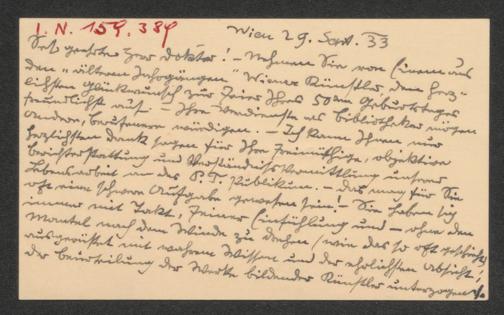 I. N. 159.389
Wien 29. Sept. 33
Sehr geehrter Herr Doktor! – Nehmen Sie von Einem aus
den „älteren Jahrgängen“ Wiener Künstler, den herz-
lichsten Glückwunsch zur Feier Ihres 50ten Geburtstages
freundlichst auf. – Ihre Verdienste als Bibliothekar mögen
Andere, berufenere würdigen. – Ich kann Ihnen nur
herzlichsten Dank sagen für Ihre freimüthige, objektive
Berichterstattung und Verständnisvermittlung unserer
Lebensarbeit an das P. T. Publikum. – Das mag für Sie
oft eine schwere Aufgabe gewesen sein! Sie haben sich
immer mit Takt, feiner Einfühlung und – ohne den
Mantel nach dem Winde zu drehen (wie das so oft geschieht)
ausgerüstet mit wahrem Wissen und der ehrlichsten Absicht,
der Beurteilung der Werke bildender Künstler unterzogen